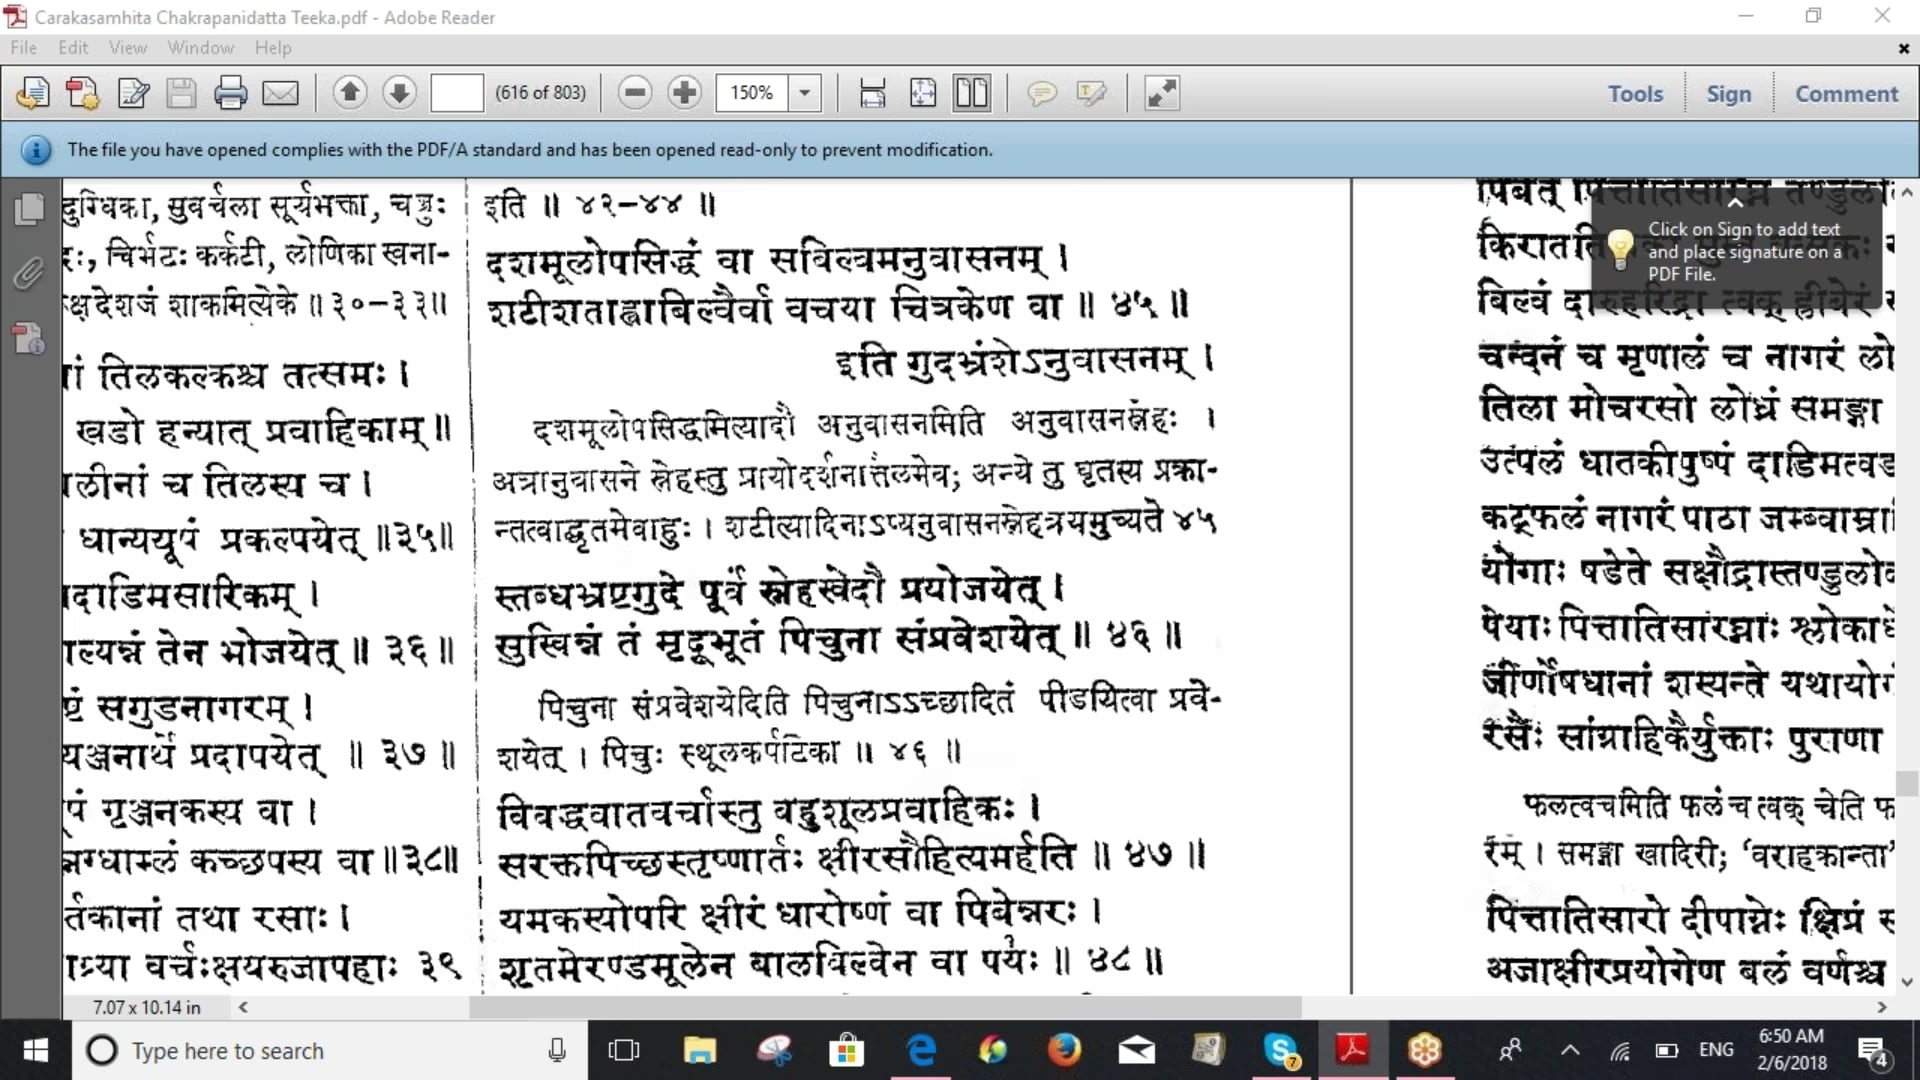 Carakasamhita Chakrapanidatta Teeka.pdf - Adobe Reader
File Edit View Window Help
(616 of 803) 150% Tools Sign Comment
The file you have opened complies with the PDF/A standard and has been opened read-only to prevent modification.
दुग्धिका, सुवर्चला सूर्यभक्ता, चञ्चुः
चिर्भटः कर्कटी, लोणिका स्वना-
क्षदेशजं शाकमित्येके ॥ ३०-३३॥
तिलकल्कश्च तत्समः ।
खडो हन्यात् प्रवाहिकाम् ॥
लीनां च तिलस्य च ।
धान्ययूषं प्रकल्पयेत् ॥३५॥
दाडिमसारिकम् ।
ल्यन्नं तेन भोजयेत् ॥ ३६ ॥
सगुडनागरम् ।
यञ्जनार्थे प्रदापयेत् ॥ ३७ ॥
गृञ्जनकस्य वा ।
कच्छपस्य वा ॥३८॥
र्तकानां तथा रसाः ।
वर्चःक्षयरुजापहाः ३९
इति ॥ ४२-४४ ॥
दशमूलोपसिद्धं वा सबिल्वमनुवासनम् ।
शटीशताह्वाबिल्वैर्वा वचया चित्रकेण वा ॥ ४५ ॥
इति गुदभ्रंशेऽनुवासनम् ।
दशमूलोपसिद्धमित्यादौ अनुवासनमिति अनुवासनस्नेहः ।
अत्रानुवासने स्नेहस्तु प्रायोदर्शनात्तैलमेव; अन्ये तु घृतस्य प्रक्रा-
न्तत्वाद्धृतमेवाहुः । शटीत्यादिनाऽप्यनुवासनस्नेहत्रयमुच्यते ४५
स्तब्धभ्रष्टगुदे पूर्वं स्नेहस्वेदौ प्रयोजयेत् ।
सुस्विन्नं तं मृदूभूतं पिचुना संप्रवेशयेत् ॥ ४६ ॥
पिचुना संप्रवेशयेदिति पिचुनाऽऽच्छादितं पीडयित्वा प्रवे-
शयेत् । पिचुः स्थूलकर्पटिका ॥ ४६ ॥
विबद्धवातवर्चास्तु बहुशूलप्रवाहिकः ।
सरक्तपिच्छस्तृष्णार्तः क्षीरसौहित्यमर्हति ॥ ४७ ॥
यमकस्योपरि क्षीरं धारोष्णं वा पिबेन्नरः ।
शृतमेरण्डमूलेन बालबिल्वेन वा पयः ॥ ४८ ॥
पिबेत् पित्तातिसारघ्नं
बिल्वं दारुहरिद्रा त्वक् ह्रीबेरं
चन्दनं च मृणालं च नागरं लो
तिला मोचरसो लोध्रं समङ्गा
उत्पलं धातकीपुष्पं दाडिमत्वक्
कट्फलं नागरं पाठा जम्ब्वाम्रा
योगाः षडेते सक्षौद्रास्तण्डुलो
पेयाः पित्तातिसारघ्नाः श्लोकार्ध
जीर्णौषधानां शस्यन्ते यथायोग
रसैः सांग्राहिकैर्युक्ताः पुराणा
फलत्वचमिति फलं च त्वक् चेति फ
रम् । समङ्गा खादिरी; 'वराहक्रान्ता'
पित्तातिसारो दीपाग्नेः क्षिप्रं स
अजाक्षीरप्रयोगेण बलं वर्णश्च
Click on Sign to add text
and place signature on a
PDF File.
7.07 x 10.14 in
Type here to search
7
ENG
6:50 AM
2/6/2018
4